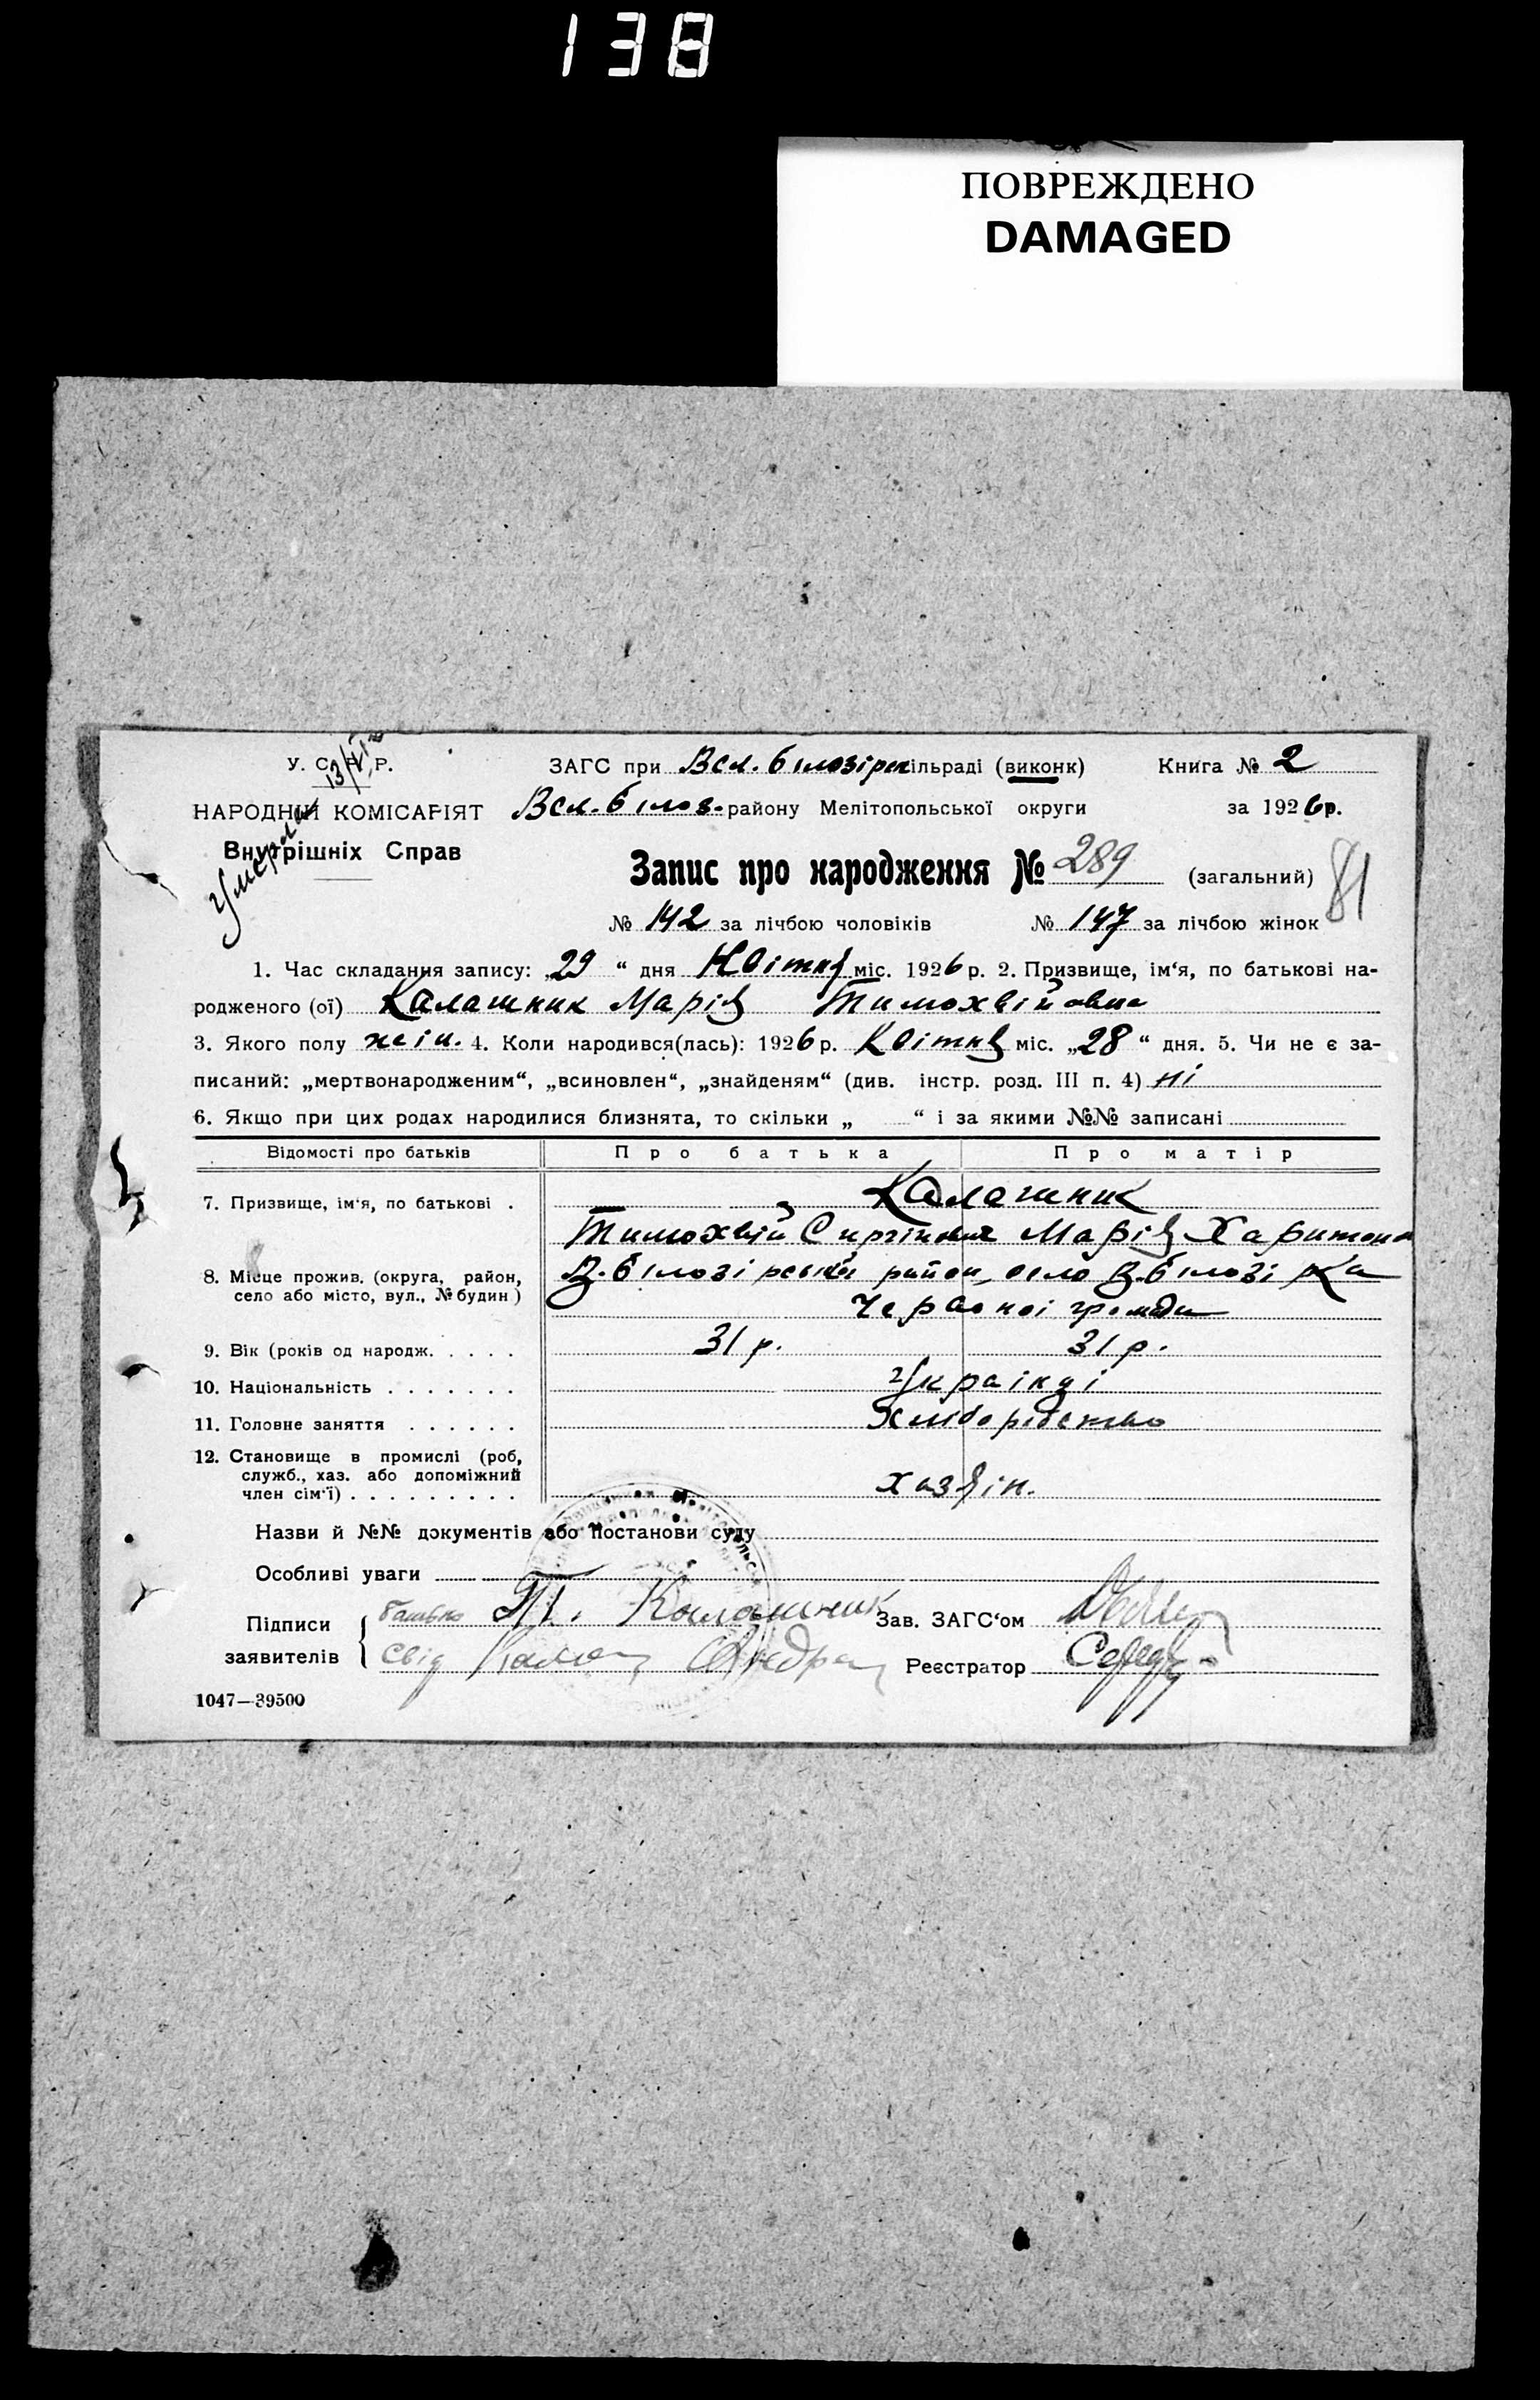 138
ПОВРЕЖДЕНО
DAMAGED
У. С. Р. Р.
НАРОДНІЙ КОМІСАРІЯТ
Внутрішніх Справ
Умерла 13/VI
ЗАГС при Вел. Білозірск ільраді (виконк) Книга № 2
Вел. Білоз. району Мелітопольської округи за 1926 р.
Запис про народження № 289 (загальний) 81
№ 142 за лічбою чоловіків № 147 за лічбою жінок
1. Час складання запису: „29 “ дня Квітня міс. 1926 р. 2. Призвище, ім‘я, по батькові на-
родженого (ої) Калашник Марія Тимохвійовна
3. Якого полу жін. 4. Коли народився(лась): 1926 р. Квітня міс. „28 “ дня. 5. Чи не є за-
писаний: „мертвонародженим“, „всиновлен“, „знайденям“ (див. інстр. розд. III п. 4) ні
6. Якщо при цих родах народилися близнята, то скільки „ “ і за якими №№ записані
Відомості про батьків Про батька Про матір
7. Призвище, ім‘я, по батькові . Калашник
Тимохвій Сиргінович Марія Харитон
8. Місце прожив. (округа, район, село або місто, вул., № будин.) В. Білозірський район, село В. Білозірка
Червоної громади
9. Вік (років од народж. . . . . 31 р. 31 р.
10. Національність . . . . . . . Українці
11. Головне заняття . . . . . . Хліборобство
12. Становище в промислі (роб, служб., хаз. або допоміжний член сім‘ї) . . . . . . . . . хазяін.
Назви й №№ документів або постанови суду
Особливі уваги
Підписи заявителів
батько Т. Калашник Зав. ЗАГС‘ом
свід Реєстратор
1047—39500